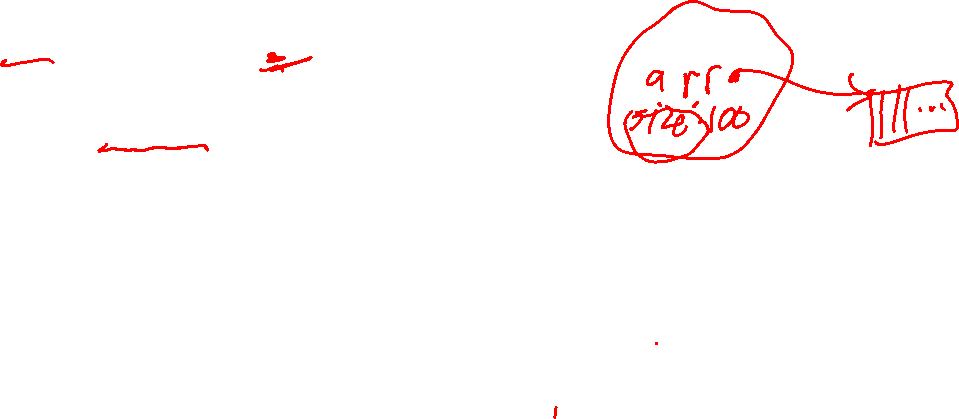 arr
size: 100
...